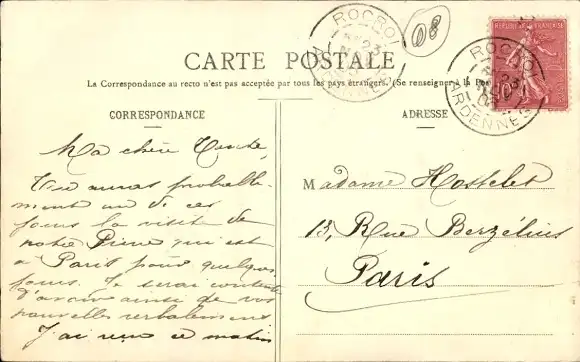 ROCROI
23
ARDENNES
08
CARTE POSTALE
RÉPUBLIQUE FRANÇAISE
ROCROI
23
08
ARDENNES
La Correspondance au recto n'est pas acceptée par tous les pays étrangers. (Se renseigner à la Pos
CORRESPONDANCE
Ma chère Tante,
Tu auras probable-
ment un de ces
jours la visite de
notre Pierre qui est
à Paris pour quelques
jours. Je serai contente
d'avoir ainsi de vos
nouvelles verbalement
J'ai reçu ce matin
ADRESSE
Madame Hostelet
13, Rue Berzélius
Paris